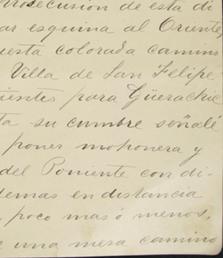 prosecusion de esta di
ar esquina al Oriente
uesta colorada camino
Villa de San Felipe,
ientes para Güerachic
ta su cumbre señalé
poner mohonera y
del Poniente con di-
demas en distancia
poco mas ó menos,
una mesa camino